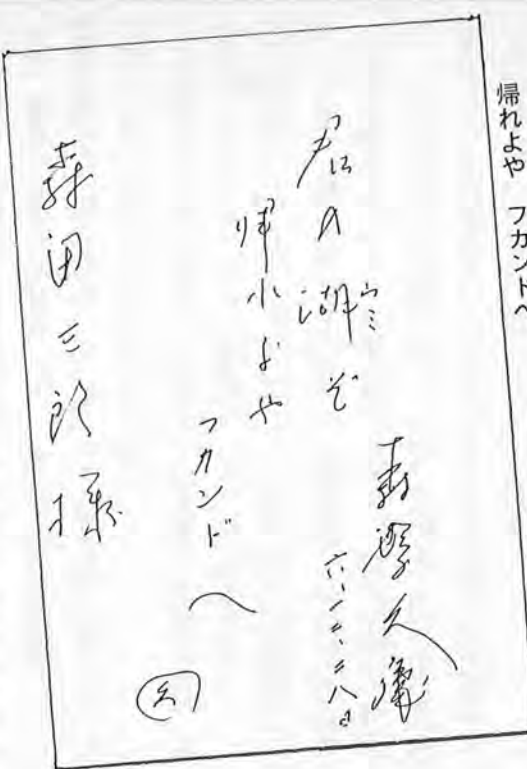 帰れよや フカンドへ
君の湖ぞ
ウミ
帰れよや
フカンドへ
六、一二、二八
森田三郎様